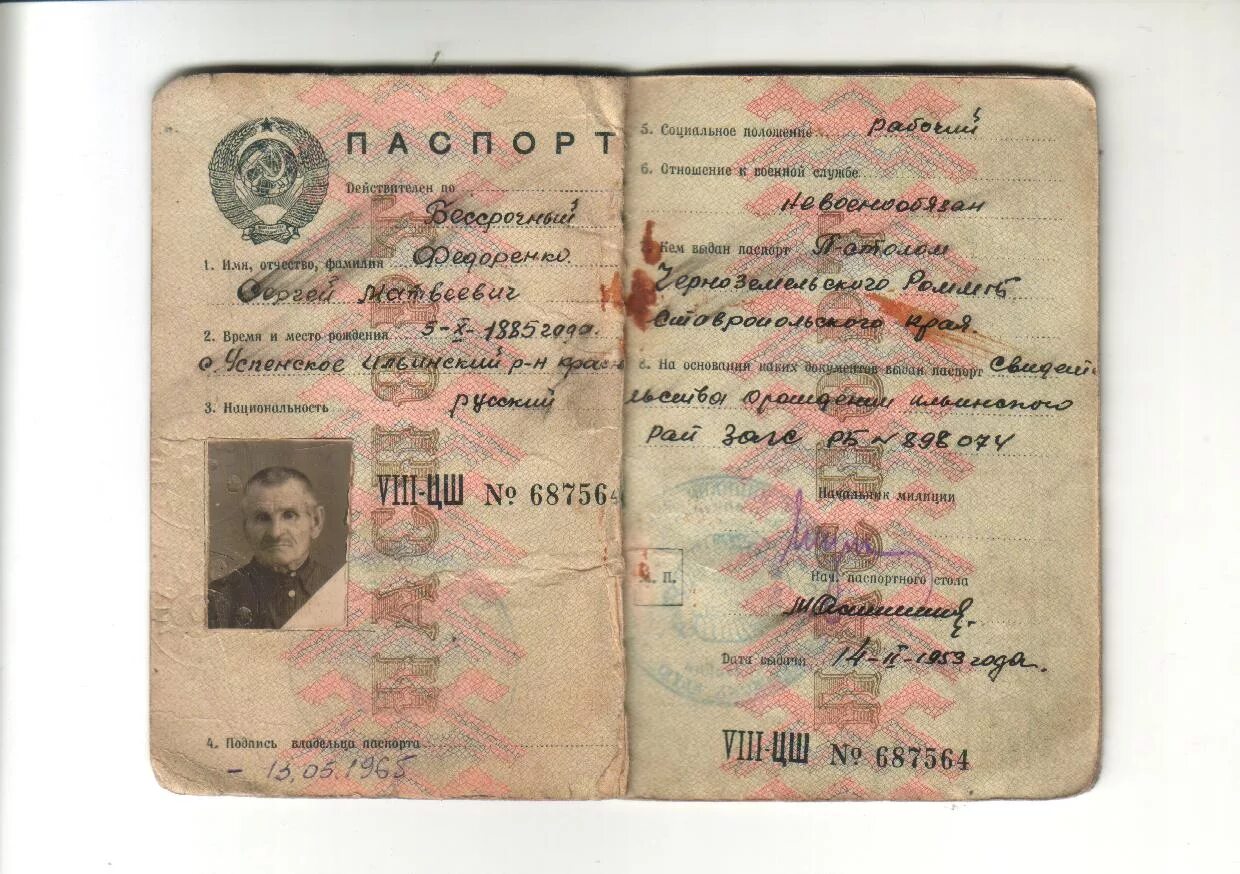 ПАСПОРТ
Действителен по
Бессрочный
1. Имя, отчество, фамилия Федоренко
Сергей Матвеевич
2. Время и место рождения 5-X-1885 года.
с. Успенское Ильинский р-н красн
3. Национальность русский
VIII-ЦШ № 687564
4. Подпись владельца паспорта
- 13.05.1965
5. Социальное положение рабочий
6. Отношение к военной службе
Невоеннообязан
7. Кем выдан паспорт П-столом
Черноземельского
Ставропольского края.
8. На основании каких документов выдан паспорт Свидете
льства о рождении ильинского
рай Загс РБ № 898074
Начальник милиции
М. П.
Нач. паспортного стола
Дата выдачи 14-II-1953 года.
VIII-ЦШ № 687564